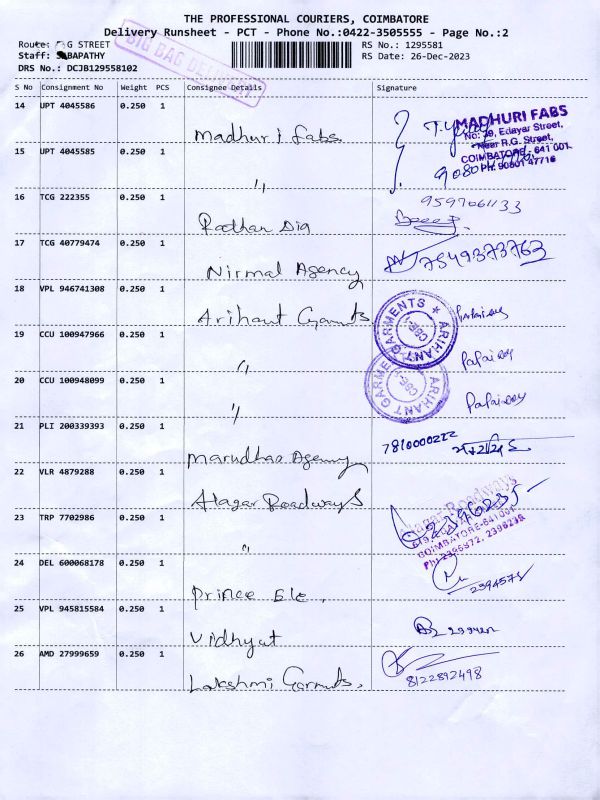 THE PROFESSIONAL COURIERS, COIMBATORE
Delivery Runsheet - PCT - Phone No.:0422-3505555 - Page No.:2
BIG BAG DELIVERY
Route: G STREET
RS No.: 1295581
Staff: SABAPATHY
RS Date: 26-Dec-2023
DRS No.: DCJB129558102
S No Consignment No Weight PCS Consignee Details Signature
14 UPT 4045586 0.250 1
Madhuri fabs
MADHURI FABS
No: 39, Edayar Street,
Near R.G. Street,
COIMBATORE - 641 001.
Ph: 90801 47716
15 UPT 4045585 0.250 1
"
16 TCG 222355 0.250 1
9597061133
17 TCG 40779474 0.250 1
Nirmal Agency
7549373763
18 VPL 946741308 0.250 1
Arihant Garments
ARIHANT GARMENTS
CBE-1
19 CCU 100947966 0.250 1
"
20 CCU 100948099 0.250 1
"
ARIHANT GARMENTS
21 PLI 200339393 0.250 1
Marudhar Agency
7810000222
22 VLR 4879288 0.250 1
Alagar Roadways
Alagar Roadways
COIMBATORE-641001
23 TRP 7702986 0.250 1
"
24 DEL 600068178 0.250 1
Prince Ele.
25 VPL 945815584 0.250 1
Vidhyut
26 AMD 27999659 0.250 1
Lakshmi Garments.
8122892498